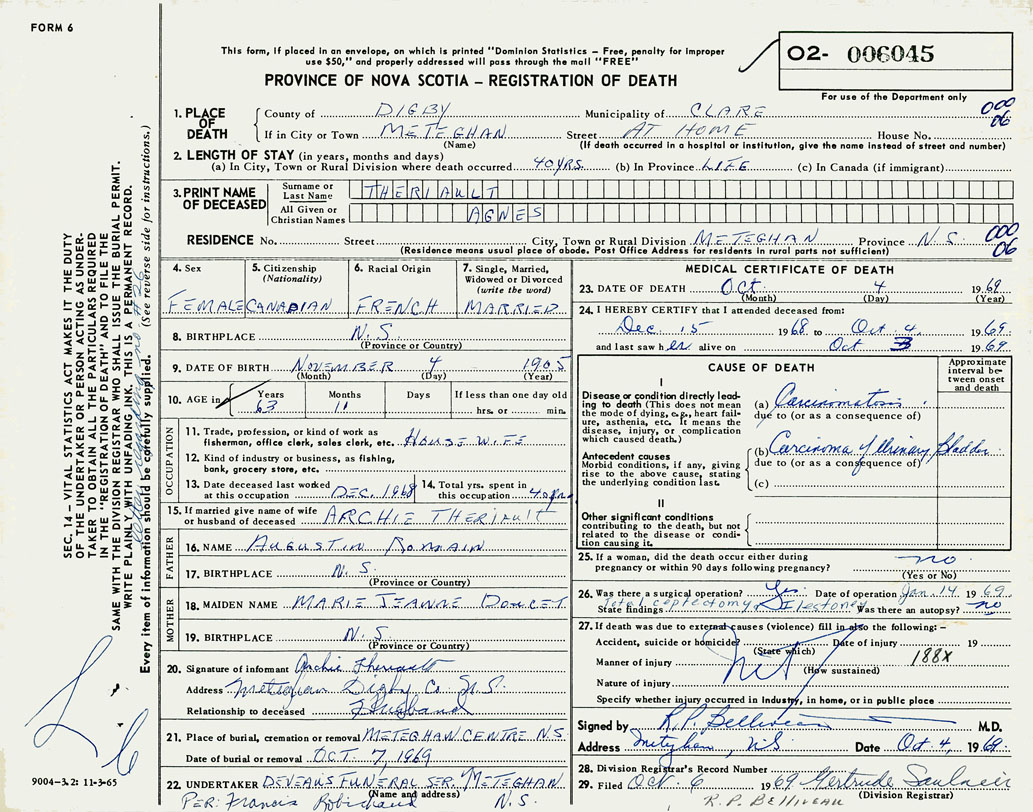 FORM 6
This form, if placed in an envelope, on which is printed "Dominion Statistics – Free, penalty for improper
use $50," and properly addressed will pass through the mail "FREE"
PROVINCE OF NOVA SCOTIA – REGISTRATION OF DEATH
02- 006045
For use of the Department only
1. PLACE OF DEATH County of DIGBY Municipality of CLARE 000 06
If in City or Town METEGHAN Street AT HOME House No.
(Name) (If death occurred in a hospital or institution, give the name instead of street and number)
2. LENGTH OF STAY (in years, months and days)
(a) In City, Town or Rural Division where death occurred 40 YRS. (b) In Province LIFE (c) In Canada (if immigrant)
3. PRINT NAME OF DECEASED Surname or Last Name THERIAULT
All Given or Christian Names AGNES
RESIDENCE No. Street City, Town or Rural Division METEGHAN Province N.S. 000 06
(Residence means usual place of abode. Post Office Address for residents in rural parts not sufficient)
4. Sex FEMALE
5. Citizenship (Nationality) CANADIAN
6. Racial Origin FRENCH
7. Single, Married, Widowed or Divorced (write the word) MARRIED
8. BIRTHPLACE N.S.
(Province or Country)
9. DATE OF BIRTH NOVEMBER 4 1905
(Month) (Day) (Year)
10. AGE in Years 63 Months 11 Days If less than one day old hrs. or min.
OCCUPATION
11. Trade, profession, or kind of work as
fisherman, office clerk, sales clerk, etc. HOUSE WIFE
12. Kind of industry or business, as fishing,
bank, grocery store, etc.
13. Date deceased last worked
at this occupation DEC. 1968
14. Total yrs. spent in
this occupation 40 yrs.
15. If married give name of wife
or husband of deceased ARCHIE THERIAULT
FATHER
16. NAME AUGUSTIN ROMAIN
17. BIRTHPLACE N.S.
(Province or Country)
MOTHER
18. MAIDEN NAME MARIE JEANNE DOUCET
19. BIRTHPLACE N.S.
(Province or Country)
20. Signature of informant Archie Theriault
Address Meteghan Digby Co. N.S.
Relationship to deceased Husband
21. Place of burial, cremation or removal METEGHAN CENTRE N.S.
Date of burial or removal OCT. 7, 1969
22. UNDERTAKER DEVEAU'S FUNERAL SER. METEGHAN
(Name and address)
PER: Francis Robichaud N.S.
MEDICAL CERTIFICATE OF DEATH
23. DATE OF DEATH Oct 4 1969
(Month) (Day) (Year)
24. I HEREBY CERTIFY that I attended deceased from:
Dec. 15 1968 to Oct 4 1969
and last saw her alive on Oct 3 1969
CAUSE OF DEATH
Approximate interval between onset and death
I
Disease or condition directly leading to death (This does not mean the mode of dying, e.g., heart failure, asthenia, etc. It means the disease, injury, or complication which caused death.)
(a) Carcinomatosis
due to (or as a consequence of)
Antecedent causes
Morbid conditions, if any, giving rise to the above cause, stating the underlying condition last.
(b) Carcinoma of Urinary Bladder
due to (or as a consequence of)
(c)
II
Other significant conditions
contributing to the death, but not related to the disease or condition causing it.
25. If a woman, did the death occur either during
pregnancy or within 90 days following pregnancy? no
(Yes or No)
26. Was there a surgical operation? Yes Date of operation Jan. 14 1969
State findings Total Was there an autopsy? no
27. If death was due to external causes (violence) fill in also the following: –
Accident, suicide or homicide? Date of injury 19
(State which)
Manner of injury 188X
(How sustained)
Nature of injury
Specify whether injury occurred in Industry, in home, or in public place
Signed by R.P. Belliveau M.D.
Address Meteghan, N.S. Date Oct 4, 1969
28. Division Registrar's Record Number
29. Filed Oct 6 1969 Gertrude Saulnier
(Division Registrar)
R.P. BELLIVEAU
SEC. 14 – VITAL STATISTICS ACT MAKES IT THE DUTY
OF THE UNDERTAKER OR PERSON ACTING AS UNDER-
TAKER TO OBTAIN ALL THE PARTICULARS REQUIRED
IN THE "REGISTRATION OF DEATH" AND TO FILE THE
SAME WITH THE DIVISION REGISTRAR WHO SHALL ISSUE THE BURIAL PERMIT.
WRITE PLAINLY WITH UNFADING INK. THIS IS A PERMANENT RECORD.
Every item of information should be carefully supplied. (See reverse side for instructions.)
9004-3.2: 11-3-65